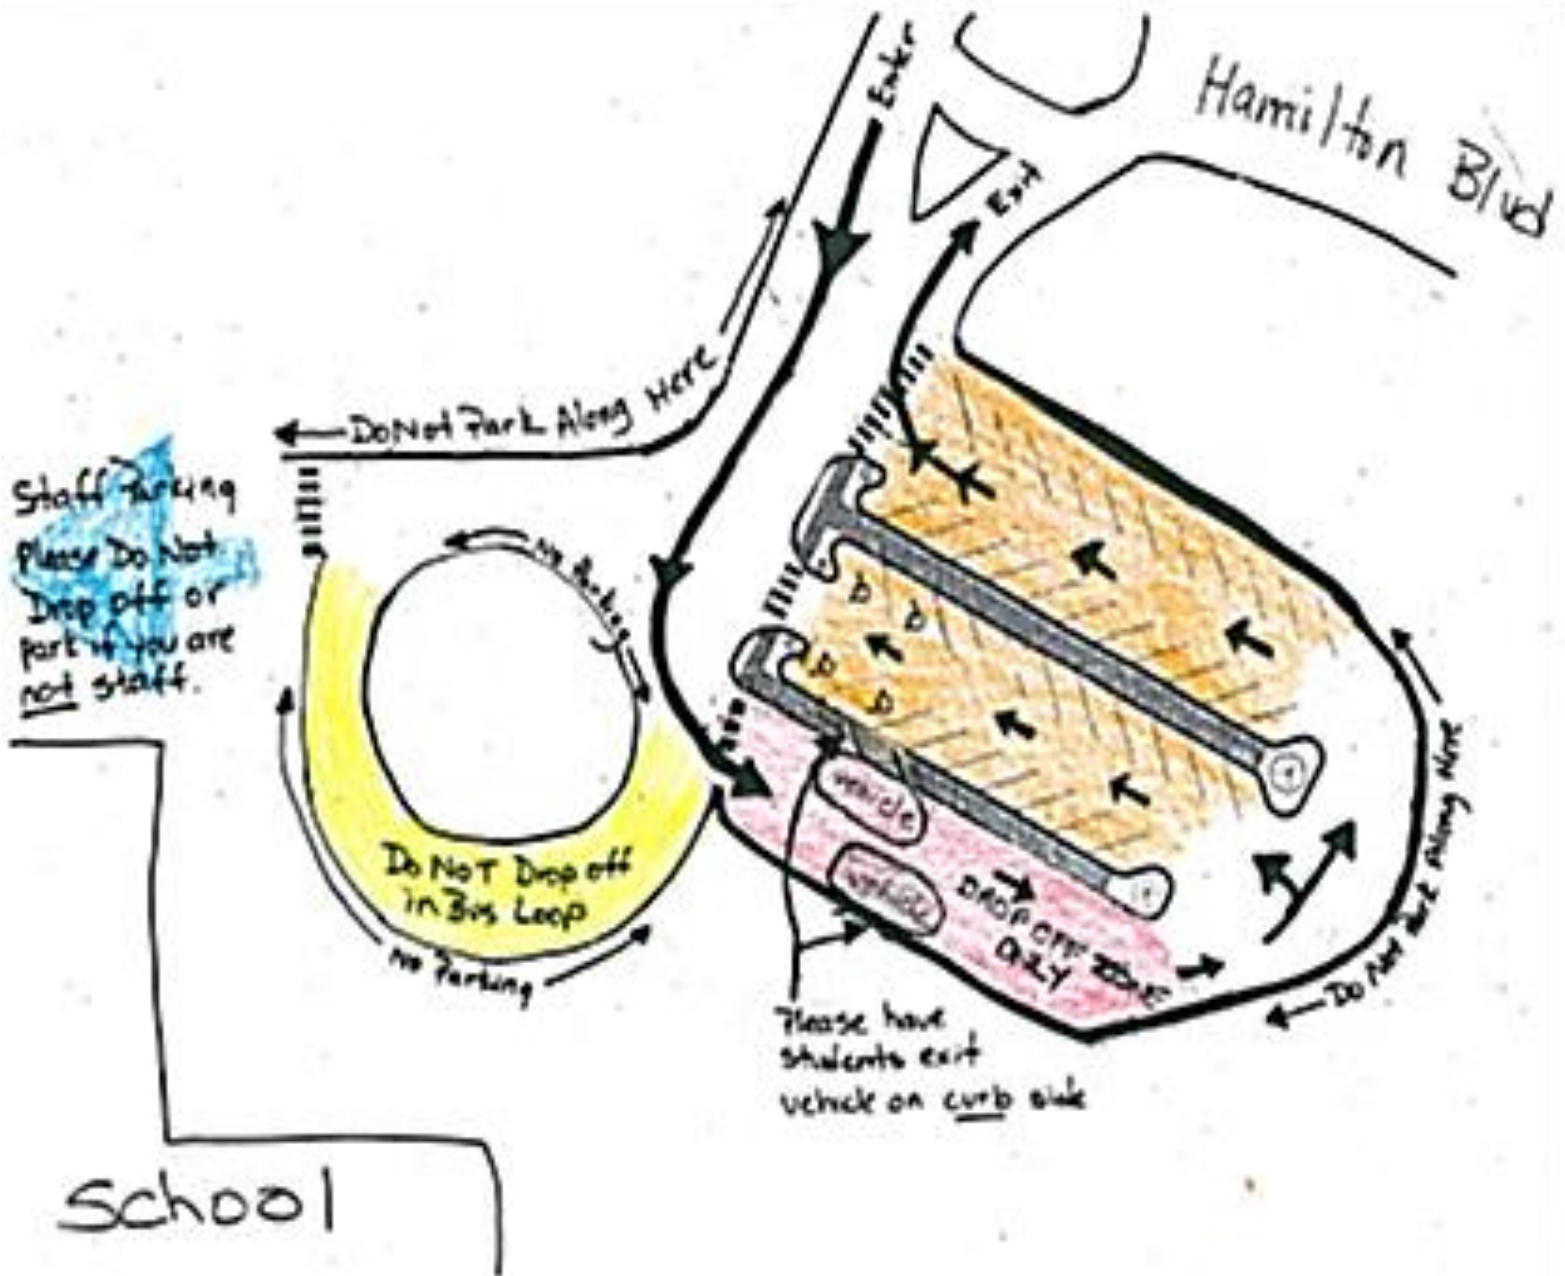 Enter
Hamilton Blvd
Exit
Do Not Park Along Here
Staff Parking
Please Do Not
Drop off or
park if you are
not staff.
No Parking
D
D
D
D
vehicle
vehicle
Do NOT Drop off
in Bus Loop
No Parking
DROP OFF ZONE
ONLY
Do Not Park Along Here
Please have
students exit
vehicle on curb side
School